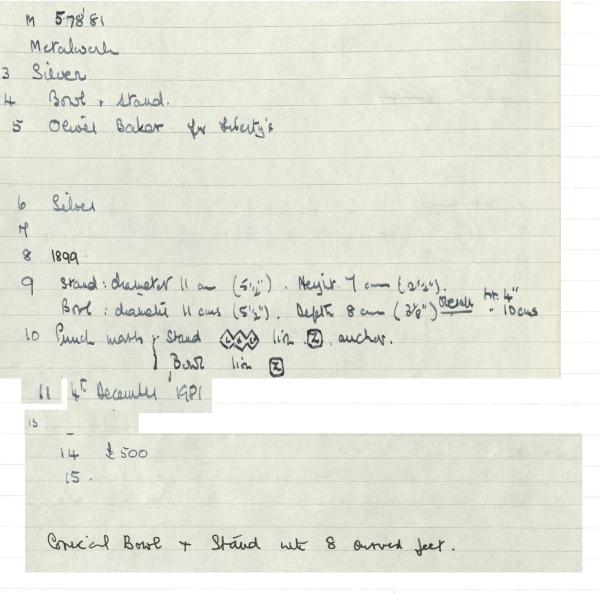 M 578'81
Metalwork
3 Silver
4 Bowl + stand.
5 Oliver Baker for Liberty's
6 Silver
7
8 1899
9 Stand : diameter 11 cm (5½"). Height 7 cm (2½").
Bowl : diameter 11 cms (5½"). Depth 8 cm (3⅛") Overall ht. 4" - 10 cms
10 Punch marks { Stand L&Co lion Z, anchor.
Bowl lion Z
11 4th December 1981
13 -
14 £500
15.
Conical Bowl + Stand with 8 curved feet.